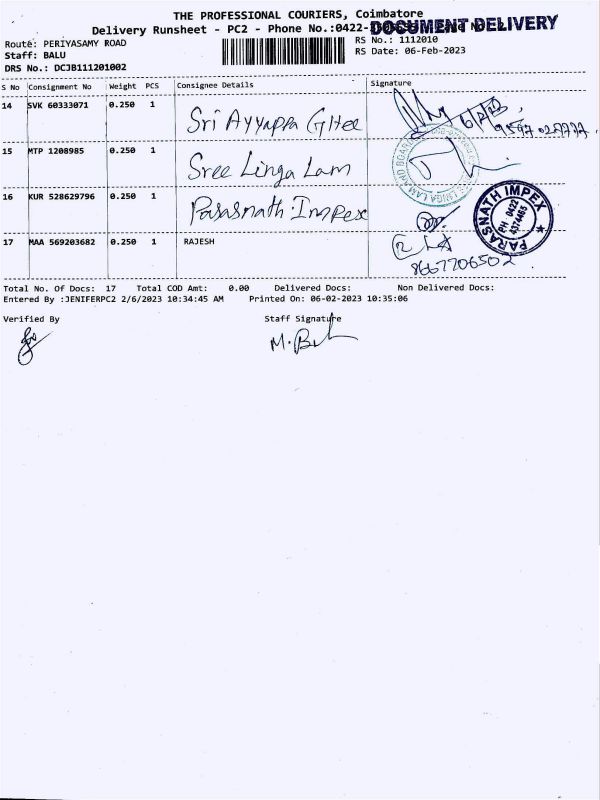 THE PROFESSIONAL COURIERS, Coimbatore
Delivery Runsheet - PC2 - Phone No.:0422-
DOCUMENT DELIVERY
Route: PERIYASAMY ROAD
RS No.: 1112010
Staff: BALU
RS Date: 06-Feb-2023
DRS No.: DCJB111201002
S No Consignment No Weight PCS Consignee Details Signature
14 SVK 60333071 0.250 1 Sri Ayyappa Ghee
6/2/23,
15 MTP 1208985 0.250 1 Sree Linga Lam
LINGA LAM
16 KUR 528629796 0.250 1 Parasnath Impex
PARASNATH IMPEX
PH 0422
4374465
17 MAA 569203682 0.250 1 RAJESH
8667706502
Total No. Of Docs: 17 Total COD Amt: 0.00 Delivered Docs: Non Delivered Docs:
Entered By :JENIFERPC2 2/6/2023 10:34:45 AM Printed On: 06-02-2023 10:35:06
Verified By Staff Signature